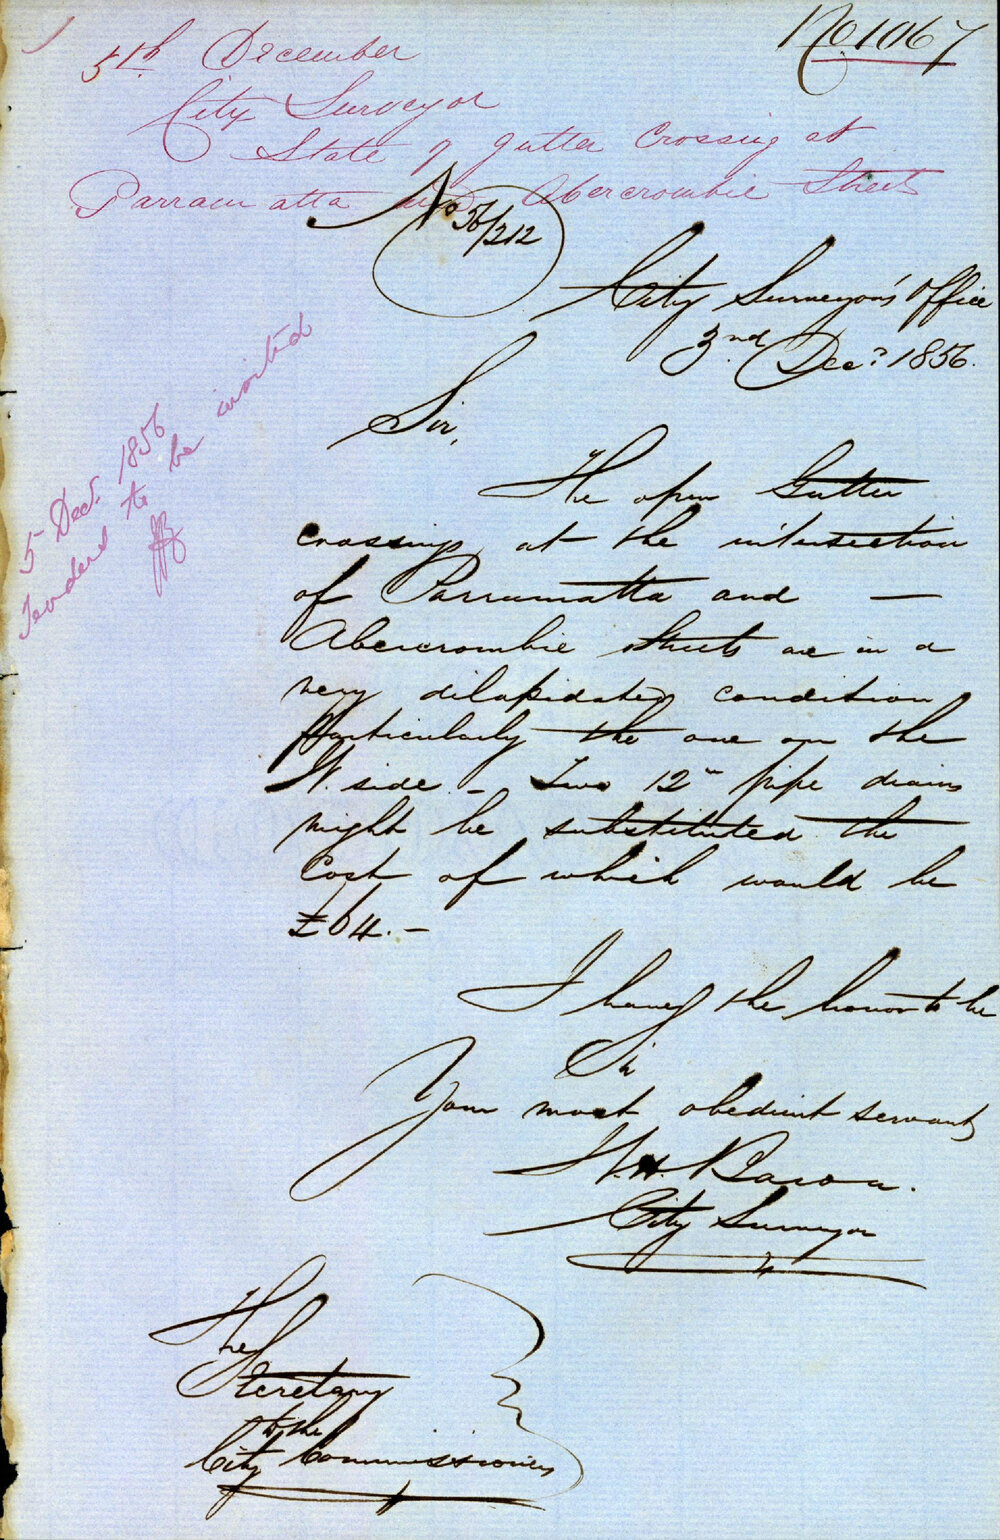 No 1067
5th December
City Surveyor
State of gutter Crossing at
Parramatta and Abercrombie Streets
No 56/212
City Surveyor's Office
3nd Decr 1856.
Sir,
The open Gutter
crossings at the intersection
of Parrumatta and —
Abercrombie Streets are in a
very dilapidated condition
particularly the one on the
W. side. - Two 12" pipe drains
might be substituted the
Cost of which would be
£64. -
I have the honor to be
Sir
Your most obedient servant
W. H.
City Surveyor
5 Decr. 1856
Tenders to be invited
The
Secretary
to the
City Commissioners